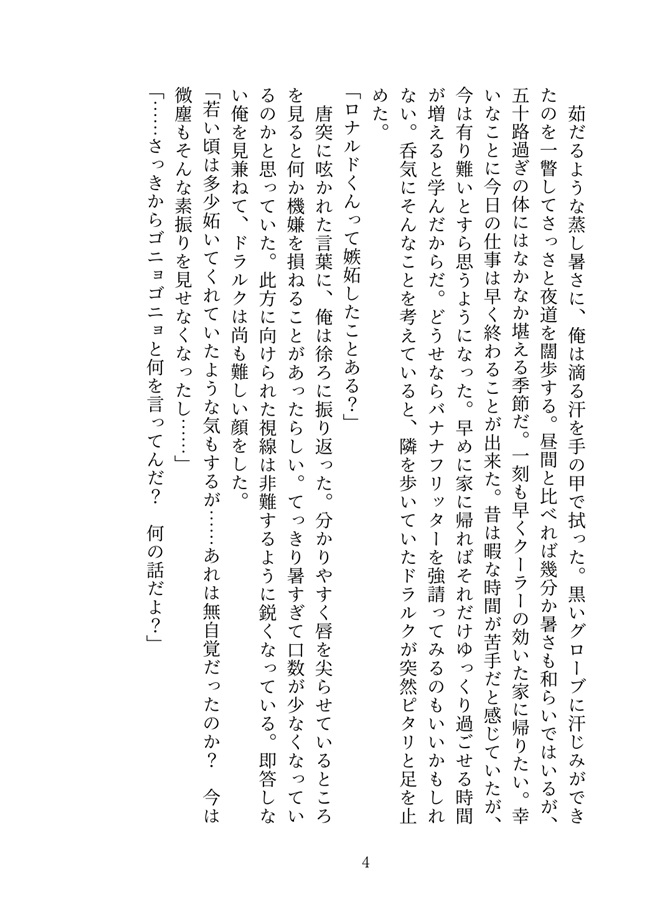 茹だるような蒸し暑さに、俺は滴る汗を手の甲で拭った。黒いグローブに汗じみができ
たのを一瞥してさっさと夜道を闊歩する。昼間と比べれば幾分か暑さも和らいではいるが、
五十路過ぎの体にはなかなか堪える季節だ。一刻も早くクーラーの効いた家に帰りたい。幸
いなことに今日の仕事は早く終わることが出来た。昔は暇な時間が苦手だと感じていたが、
今は有り難いとすら思うようになった。早めに家に帰ればそれだけゆっくり過ごせる時間
が増えると学んだからだ。どうせならバナナフリッターを強請ってみるのもいいかもしれ
ない。呑気にそんなことを考えていると、隣を歩いていたドラルクが突然ピタリと足を止
めた。
「ロナルドくんって嫉妬したことある？」
　唐突に呟かれた言葉に、俺は徐ろに振り返った。分かりやすく唇を尖らせているところ
を見ると何か機嫌を損ねることがあったらしい。てっきり暑すぎて口数が少なくなってい
るのかと思っていた。此方に向けられた視線は非難するように鋭くなっている。即答しな
い俺を見兼ねて、ドラルクは尚も難しい顔をした。
「若い頃は多少妬いてくれていたような気もするが……あれは無自覚だったのか？　今は
微塵もそんな素振りを見せなくなったし……」
「……さっきからゴニョゴニョと何を言ってんだ？　何の話だよ？」
4